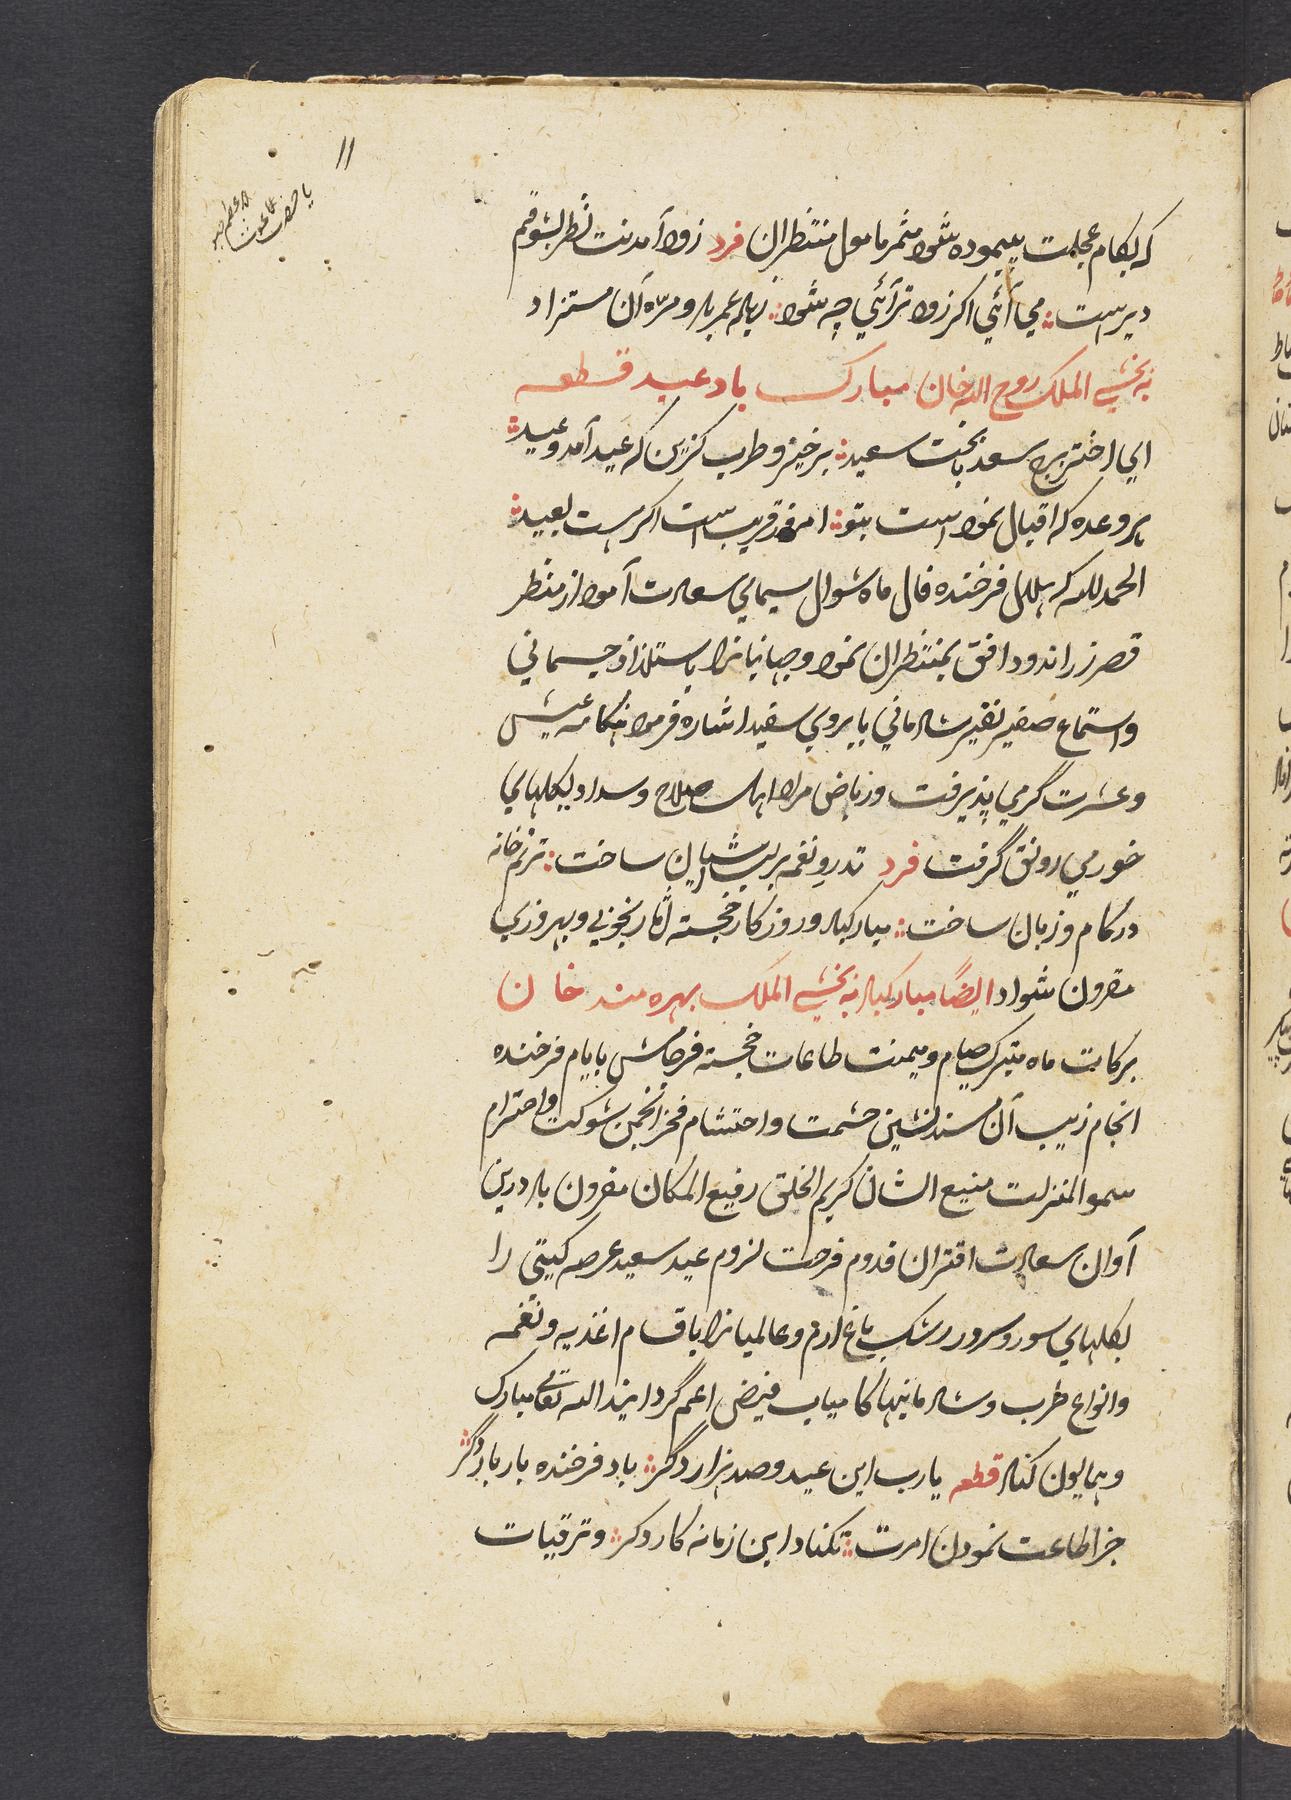 ۱۱
یا حضرت غوث الاعظم
که بکام عجلت پیموده شود مثمر مامول منتظران فرد زود آمدنت نظر بشوقم
دیرست می آئی اکر زود ترآئی چه شود بهار عمر بار ومره آن مستزاد
به بخشی الملک روح الله خان مبارک باد عید قطعه
ای اختر برج سعد بخت سعید برخیز و طرب کزین که عید آمد وعید
هر وعده که اقبال نمود است بتو امروز قریب است اکر هست بعید
الحمد لله که هلال فرخنده فال ماه شوال سیمای سعادت آمود از منظر
قصر زراندود افق بمنتظران نمود وجهانیانرا باستلذاذ جسمانی
واستماع صفیر نفیر شادمانی بابروی سفید اشاره فرمود هنکامه عیش
وعشرت گرمی پذیرفت وریاض مراد اهل صلاح وسداد بکلهای
خورمی رونق گرفت فرد تدرو نغمه بر لب آشیان ساخت ترنم خانه
در کام و زبان ساخت مبارکباد و روزکار خجسته آثار بخوبی وبهروزی
مقرون شواد ایضاً مبارکباد به بخشی الملک بهره مند خان
برکات ماه متبرک صیام و میمنت طاعات خجسته فرجامش بایام فرخنده
انجام زیب آن مسند نشین حشمت واحتشام فخر انجمن شوکت واحترام
سمو المنزلت منیع الشان کریم الخلق رفیع المکان مقرون باد درین
آوان سعادت اقتران قدوم فرحت لزوم عید سعید عرصه کیتی را
بکلهای سور وسرور رشک باغ ارم وعالمیانرا باقسام اغذیه ونغمه
وانواع طرب وشادمانیها کامیاب فیض اعم گردانید الله تعالی مبارک
وهمایون کناد قطعه یارب این عید وصد هزار دگر باد فرخنده بار بار دگر
جز اطاعت نمودن امرت نکناد این زمانه کار دکر وترقیات